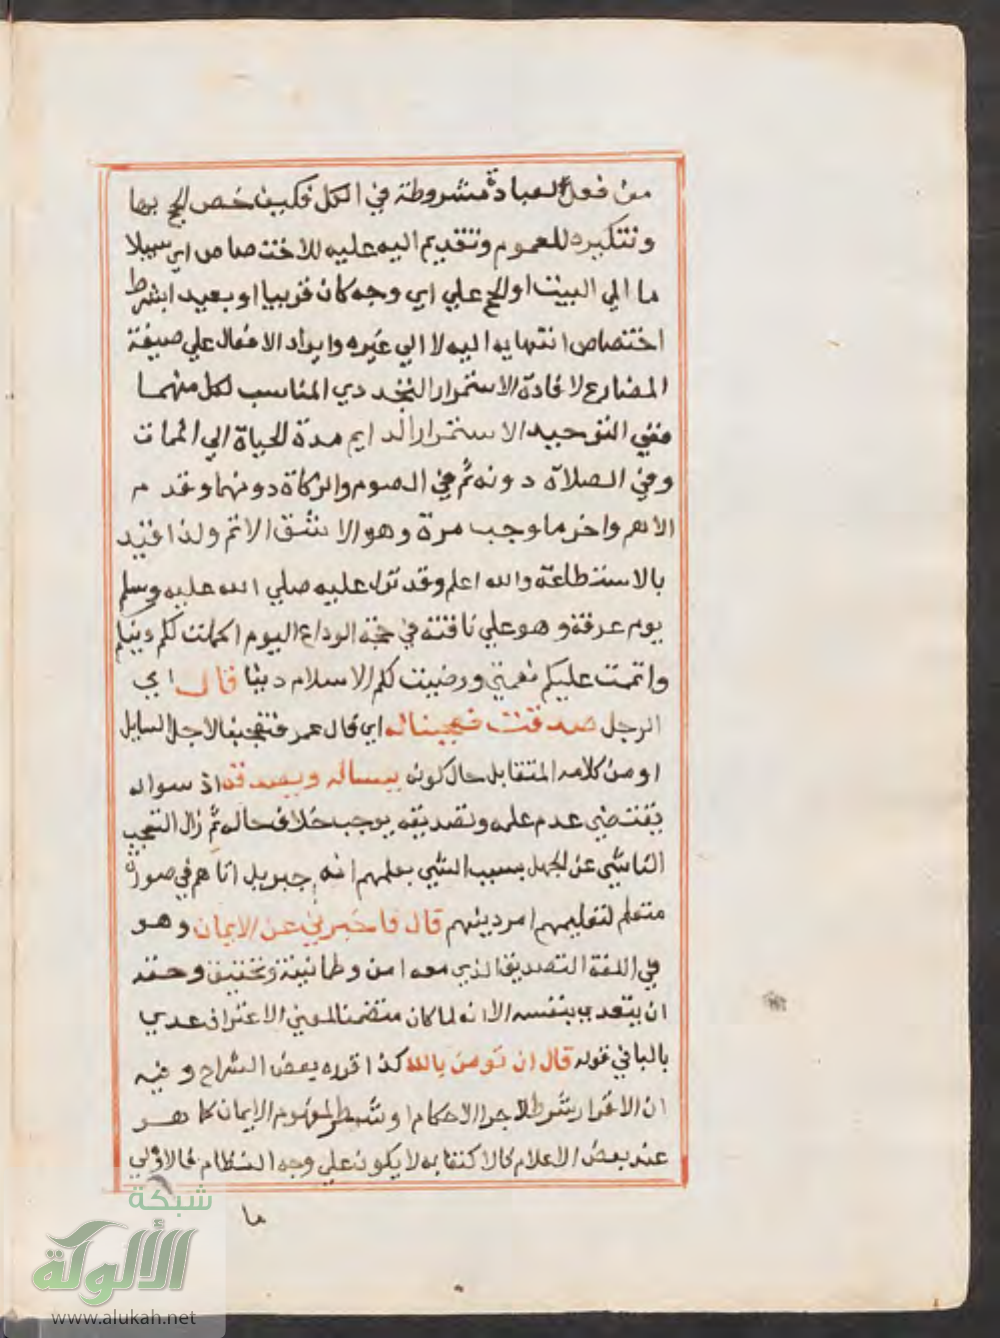 من فعل العبادة مشروطة في الكل فكيف خص الحج بها
وتنكيره للعموم وتقديم اليه عليه للاختصاص اي سبيلا
ما الي البيت او الحج علي اي وجه كان قريبا او بعيدا بشرط
اختصاص انتهايه اليه لا الي غيره وايراد الافعال علي صيغة
المضارع لافادة الاستمرار التجددي المناسب لكل منهما
ففي التوحيد الاستمرار الدايم مدة الحياة الي الممات
وفي الصلاة دونه ثم في الصوم والزكاة دونها وقدم
الاهم واخر ما وجب مرة وهو الاشق الاتم ولذا قيد
بالاستطاعة والله اعلم وقد نزل عليه صلي الله عليه وسلم
يوم عرفة وهو علي ناقته في حجة الوداع اليوم اكملت لكم دينكم
واتممت عليكم نعمتي ورضيت لكم الاسلام دينا قال اي
الرجل صدقت فعجبنا له اي قال عمر فتعجبنا لاجل السايل
او من كلامه المتقابل حال كونه يساله ويصدقه اذ سواله
يقتضي عدم علمه وتصديقه يوجب خلاف حاله ثم زال التعجب
الناشي عن الجهل بسبب الشي بعلمهم انه جبريل اتاهم في صورة
متعلم لتعليمهم امر دينهم قال فاخبرني عن الايمان وهو
في اللغة التصديق الذي معه امن وطمانينة وتحقيق وحقه
ان يتعدي بنفسه الا انه لما كان متضمنا لمعني الاعتراف عدي
بالبا في قوله قال ان تومن بالله كذا قرره بعض الشراح وفيه
ان الاقرار شرط لاجرا الاحكام او شطر لمفهوم الايمان كما هو
عند بعض الاعلام فالاكتفا به لا يكون علي وجه النظام فالاولي
ما
شبكة
الألوكة
www.alukah.net